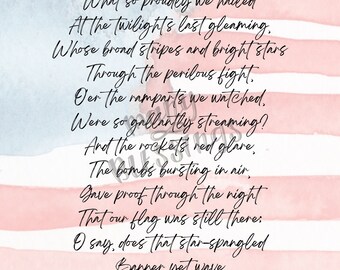 What so proudly we hailed
At the twilight's last gleaming,
Whose broad stripes and bright stars
Through the perilous fight,
O'er the ramparts we watched,
Were so gallantly streaming?
And the rockets' red glare,
The bombs bursting in air,
Gave proof through the night
That our flag was still there;
O say, does that star-spangled
Banner yet wave